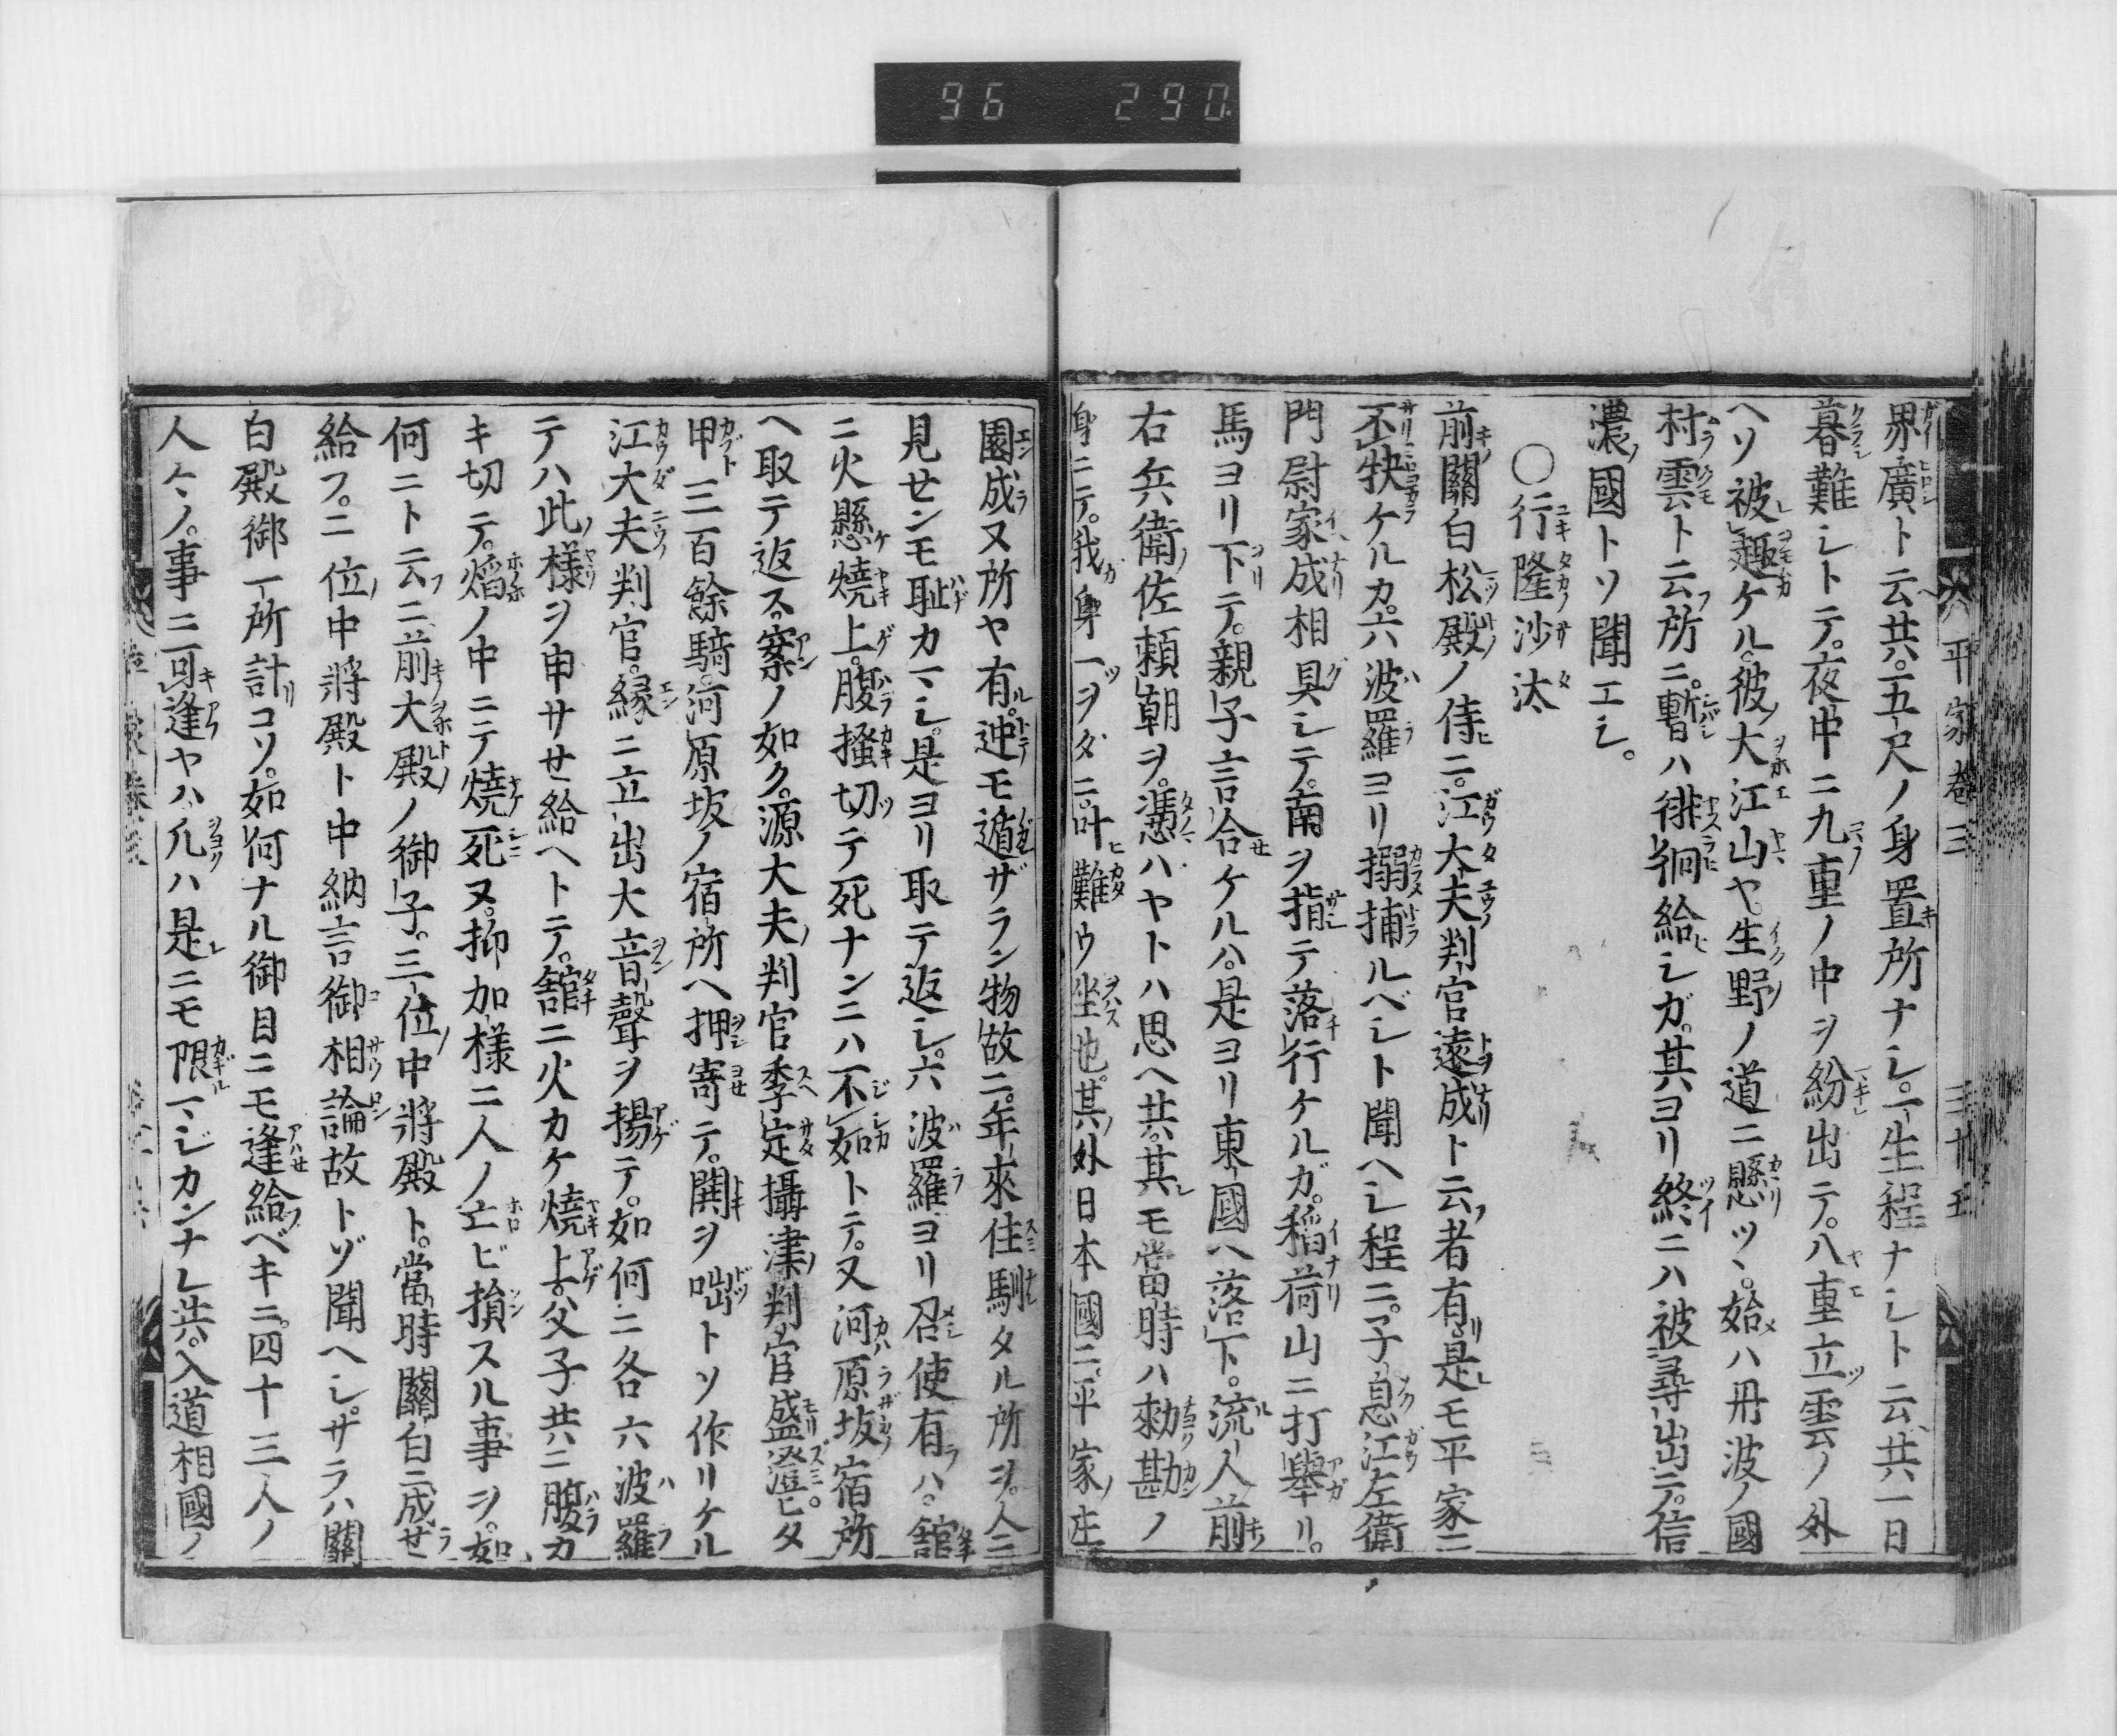 96 290
平家卷三 三十五
界廣ト云共。五尺ノ身置所ナシ。一生程ナシト云共一日
暮難シトテ。夜中ニ九重ノ中ヲ紛出テ。八重立雲ノ外
ヘソ被趣ケル。彼大江山ヤ。生野ノ道ニ懸ツヽ。始ハ丹波ノ國
村雲ト云所ニ。暫ハ徘徊給シガ。其ヨリ終ニハ被尋出テ。信
濃國トソ聞エシ。
〇行隆沙汰
前關白松殿ノ侍ニ。江大夫判官遠成ト云者有。是モ平家ニ
不快ケルカ。六波羅ヨリ搦捕ルベシト聞ヘシ程ニ。子息江左衛
門尉家成相具シテ。南ヲ指テ落行ケルガ。稲荷山ニ打擧リ。
馬ヨリ下テ。親子言合ケルハ。是ヨリ東國ヘ落下。流人前
右兵衛佐頼朝ヲ。憑ハヤトハ思ヘ共。其モ當時ハ勅勘ノ
身ニテ。我身一ヲダニ。叶難ウ坐也。其外日本國ニ。平家ノ庄
園成ヌ所ヤ有。迚モ遁ザラン物故ニ。年來住馴タル所ヲ。人ニ
見センモ恥カヽシ。是ヨリ取テ返シ。六波羅ヨリ召使有ハ。舘
ニ火懸燒上。腹搔切テ死ナンニハ不如トテ。又河原坂宿所
ヘ取テ返ス。案ノ如ク。源大夫判官季定攝津判官盛澄ヒタ
甲三百餘騎。河原坂ノ宿所ヘ押寄テ。鬨ヲ咄トソ作リケル
江大夫判官。縁ニ立出大音聲ヲ揚テ。如何ニ各六波羅
テハ此様ヲ申サせ給ヘトテ。舘ニ火カケ燒上。父子共ニ腹カ
キ切テ。焰ノ中ニテ燒死ヌ。抑加様ニ人ノ亡ビ損スル事ヲ。如
何ニト云ニ。前大殿ノ御子。三位中將殿ト。當時關白ニ成せ
給フ。二位中將殿ト中納言御相論故トゾ聞ヘシ。サラハ關
白殿御一所計コソ。如何ナル御目ニモ逢給ベキニ。四十三人ノ
人々ノ。事ニ可逢ヤハ。凡ハ是ニモ限マジカンナレ共。入道相國ノ